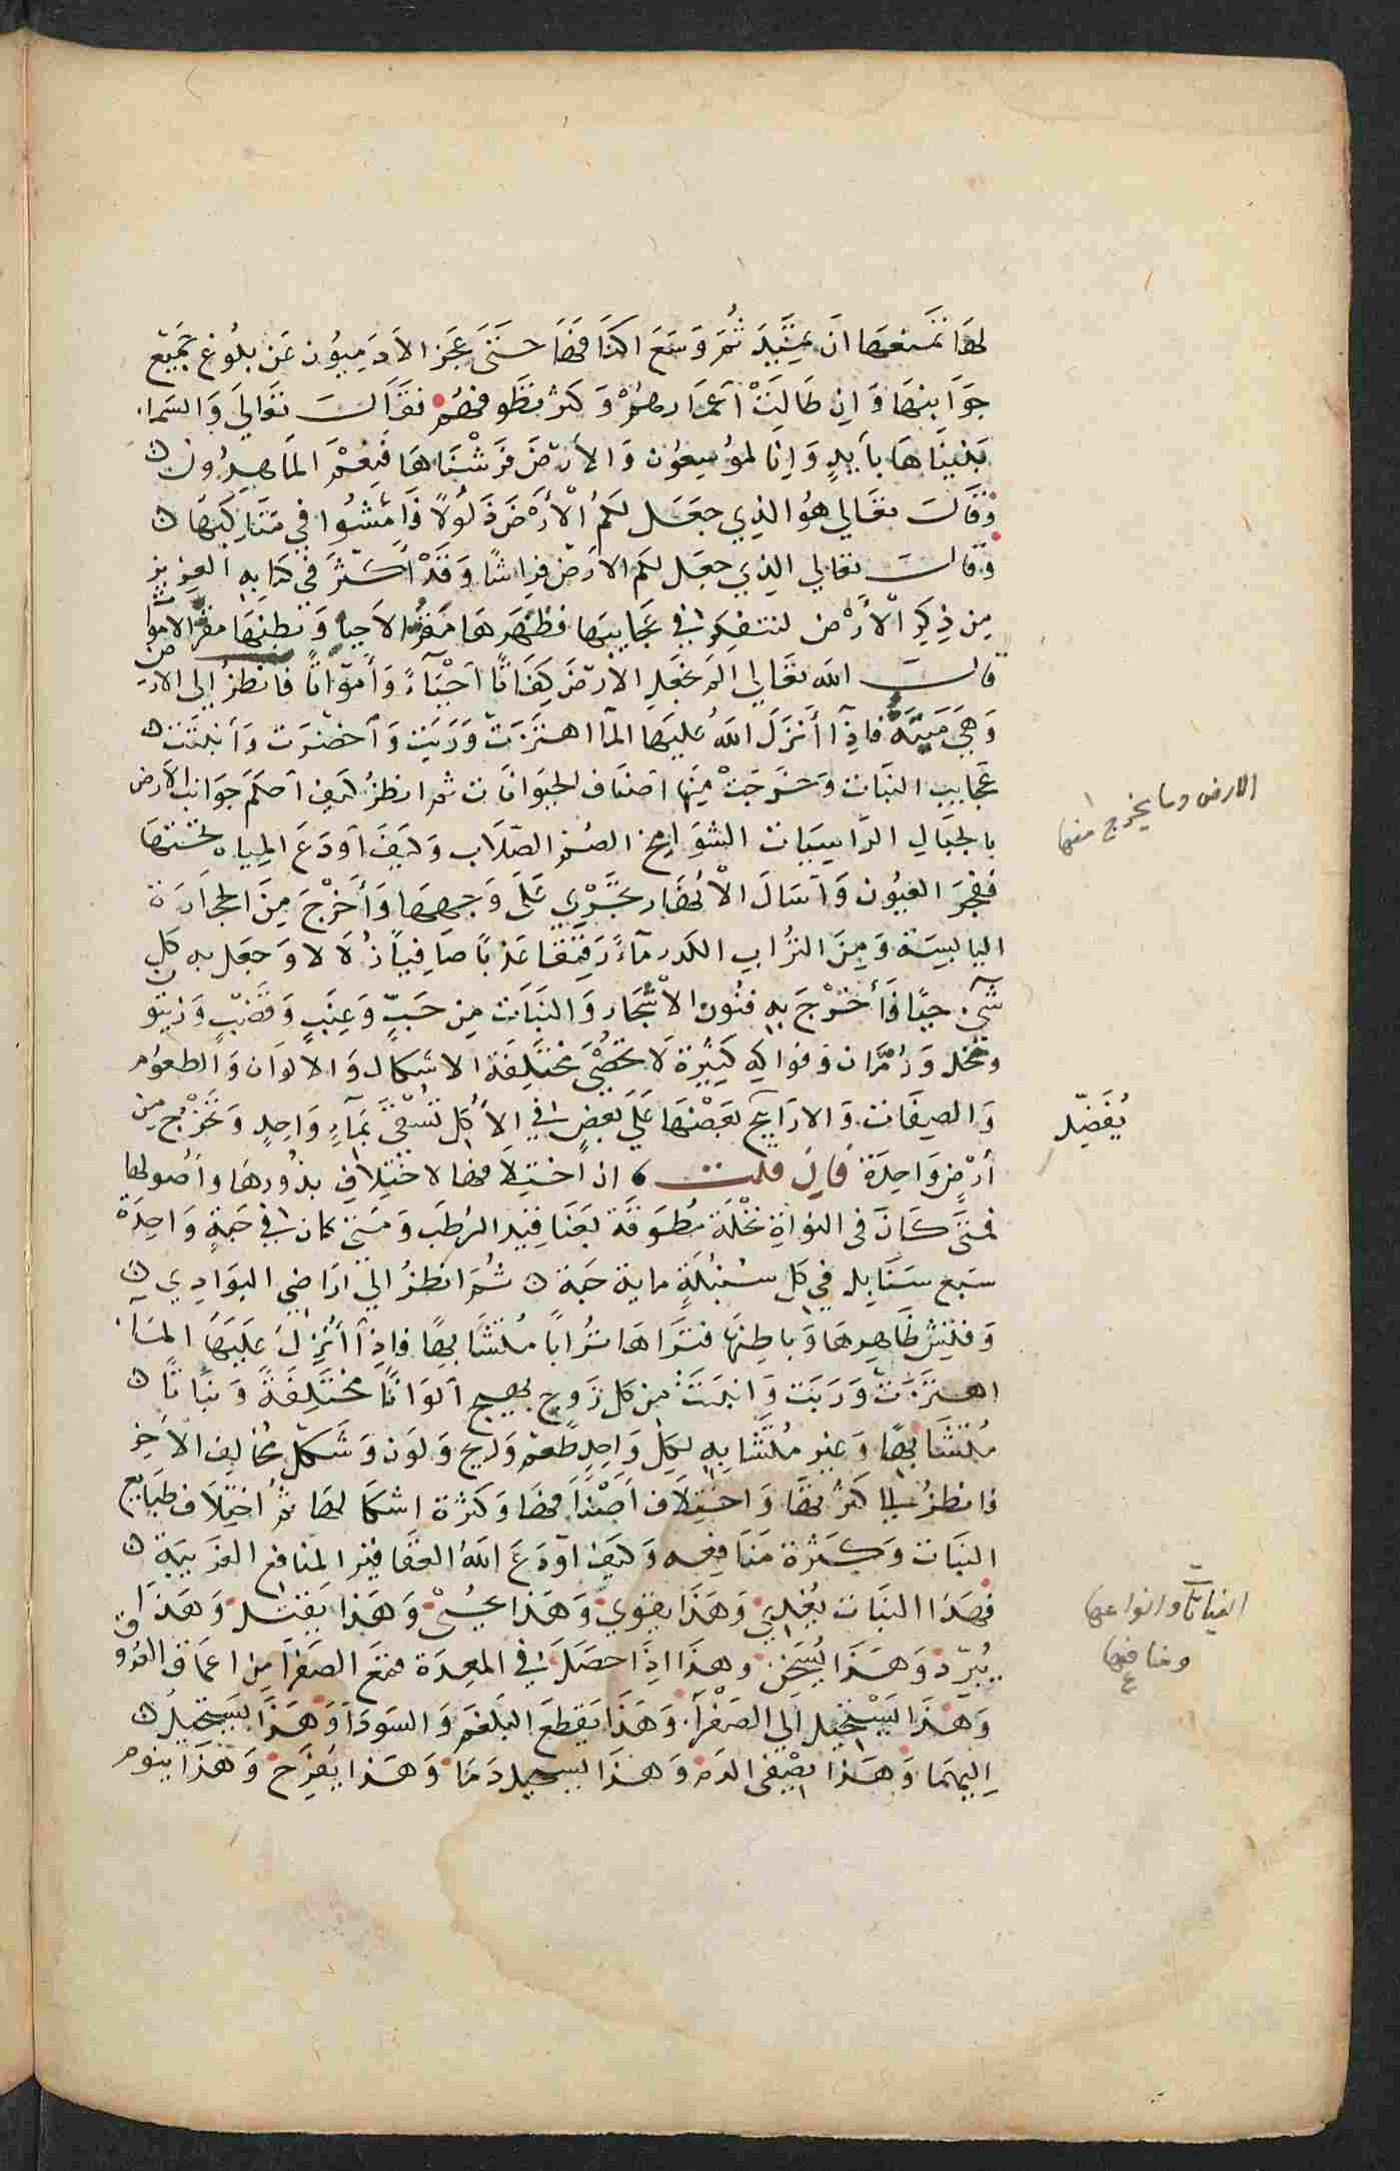 لها تمنعها ان تميد ثم وسع اكنافها حتى عجز الادميون عن بلوغ جميع
جوانبها وان طالت اعمارهم وكثر تطوفهم فقال تعالى والسماء
بنيناها بأييد وانا لموسعون والارض فرشناها فنعم الماهدون
وقال تعالي هو الذي جعل لكم الارض ذلولا فامشوا في مناكبها
وقال تعالي الذي جعل لكم الارض فراشا وقد أكثر في كتابه العزيز
من ذكر الارض لنتفكر في عجايبها فظهرها مقر الاحيا وبطنها مقر الاموات
قال الله تعالي الم نجعل الارض كفاتا احياء وأمواتا فانظر إلى الارض
وهي ميتة فاذا أنزل الله عليها الما اهتزت وربت واخضرت وأنبتت
عجايب النبات وخرجت منها اصناف الحيوانات ثم انظر كيف احكم جوانب الارض
بالجبال الراسيات الشوامخ الصم الصلاب وكيف اودع المياه تحتها
ففجر العيون واسال الانهار تجري على وجهها وأخرج من الحجارة
اليابسة ومن التراب الكدر ماء رقيقا عذبا صافيا زلالا وجعل به كل
شيء حيا فأخرج به فنون الاشجار والنبات من حب وعنب وقضب وزيتون
ونخل ورمان وفواكه كثيرة لا تحصى مختلفة الاشكال والالوان والطعوم
والصفات والاراييح بعضها على بعض في الأكل تسقى بماء واحد وتخرج من
أرض واحدة فان قلت ان اختلافها لاختلاف بذورها واصولها
فمتى كان في النواة نخلة مطوقة بعناقيد الرطب ومتى كان في حبة واحدة
سبع سنابل في كل سنبلة ماية حبة ثم انظر الي اراضي البوادي
وفتش ظاهرها وباطنها فتراها ترابا متشابها فاذا أنزل عليها الماء
اهتزت وربت وانبتت من كل زوج بهيج الوانا مختلفة ونباتا
متشابها وغير متشابه لكل واحد طعم وريح ولون وشكل يخالف الاخر
فانظر الي كثرتها واختلاف اصنافها وكثرة اشكالها ثم اختلاف طبايع
النبات وكثرة منافعه وكيف اودع الله العقاقير المنافع الغريبة
فهذا النبات يغذي وهذا يقوي وهذا يحيى وهذا يقتل وهذا
يبرد وهذا يسخن وهذا اذا حصل في المعدة قمع الصفرا من اعماق العروق
وهذا يستحيل الي الصفرا وهذا يقطع البلغم والسودا وهذا يستحيل
اليهما وهذا يصفى الدم وهذا يستحيل دما وهذا يفرح وهذا ينوم
الارض وما يخرج منها
يفضل
النباتات وانواعها
ومنافعها